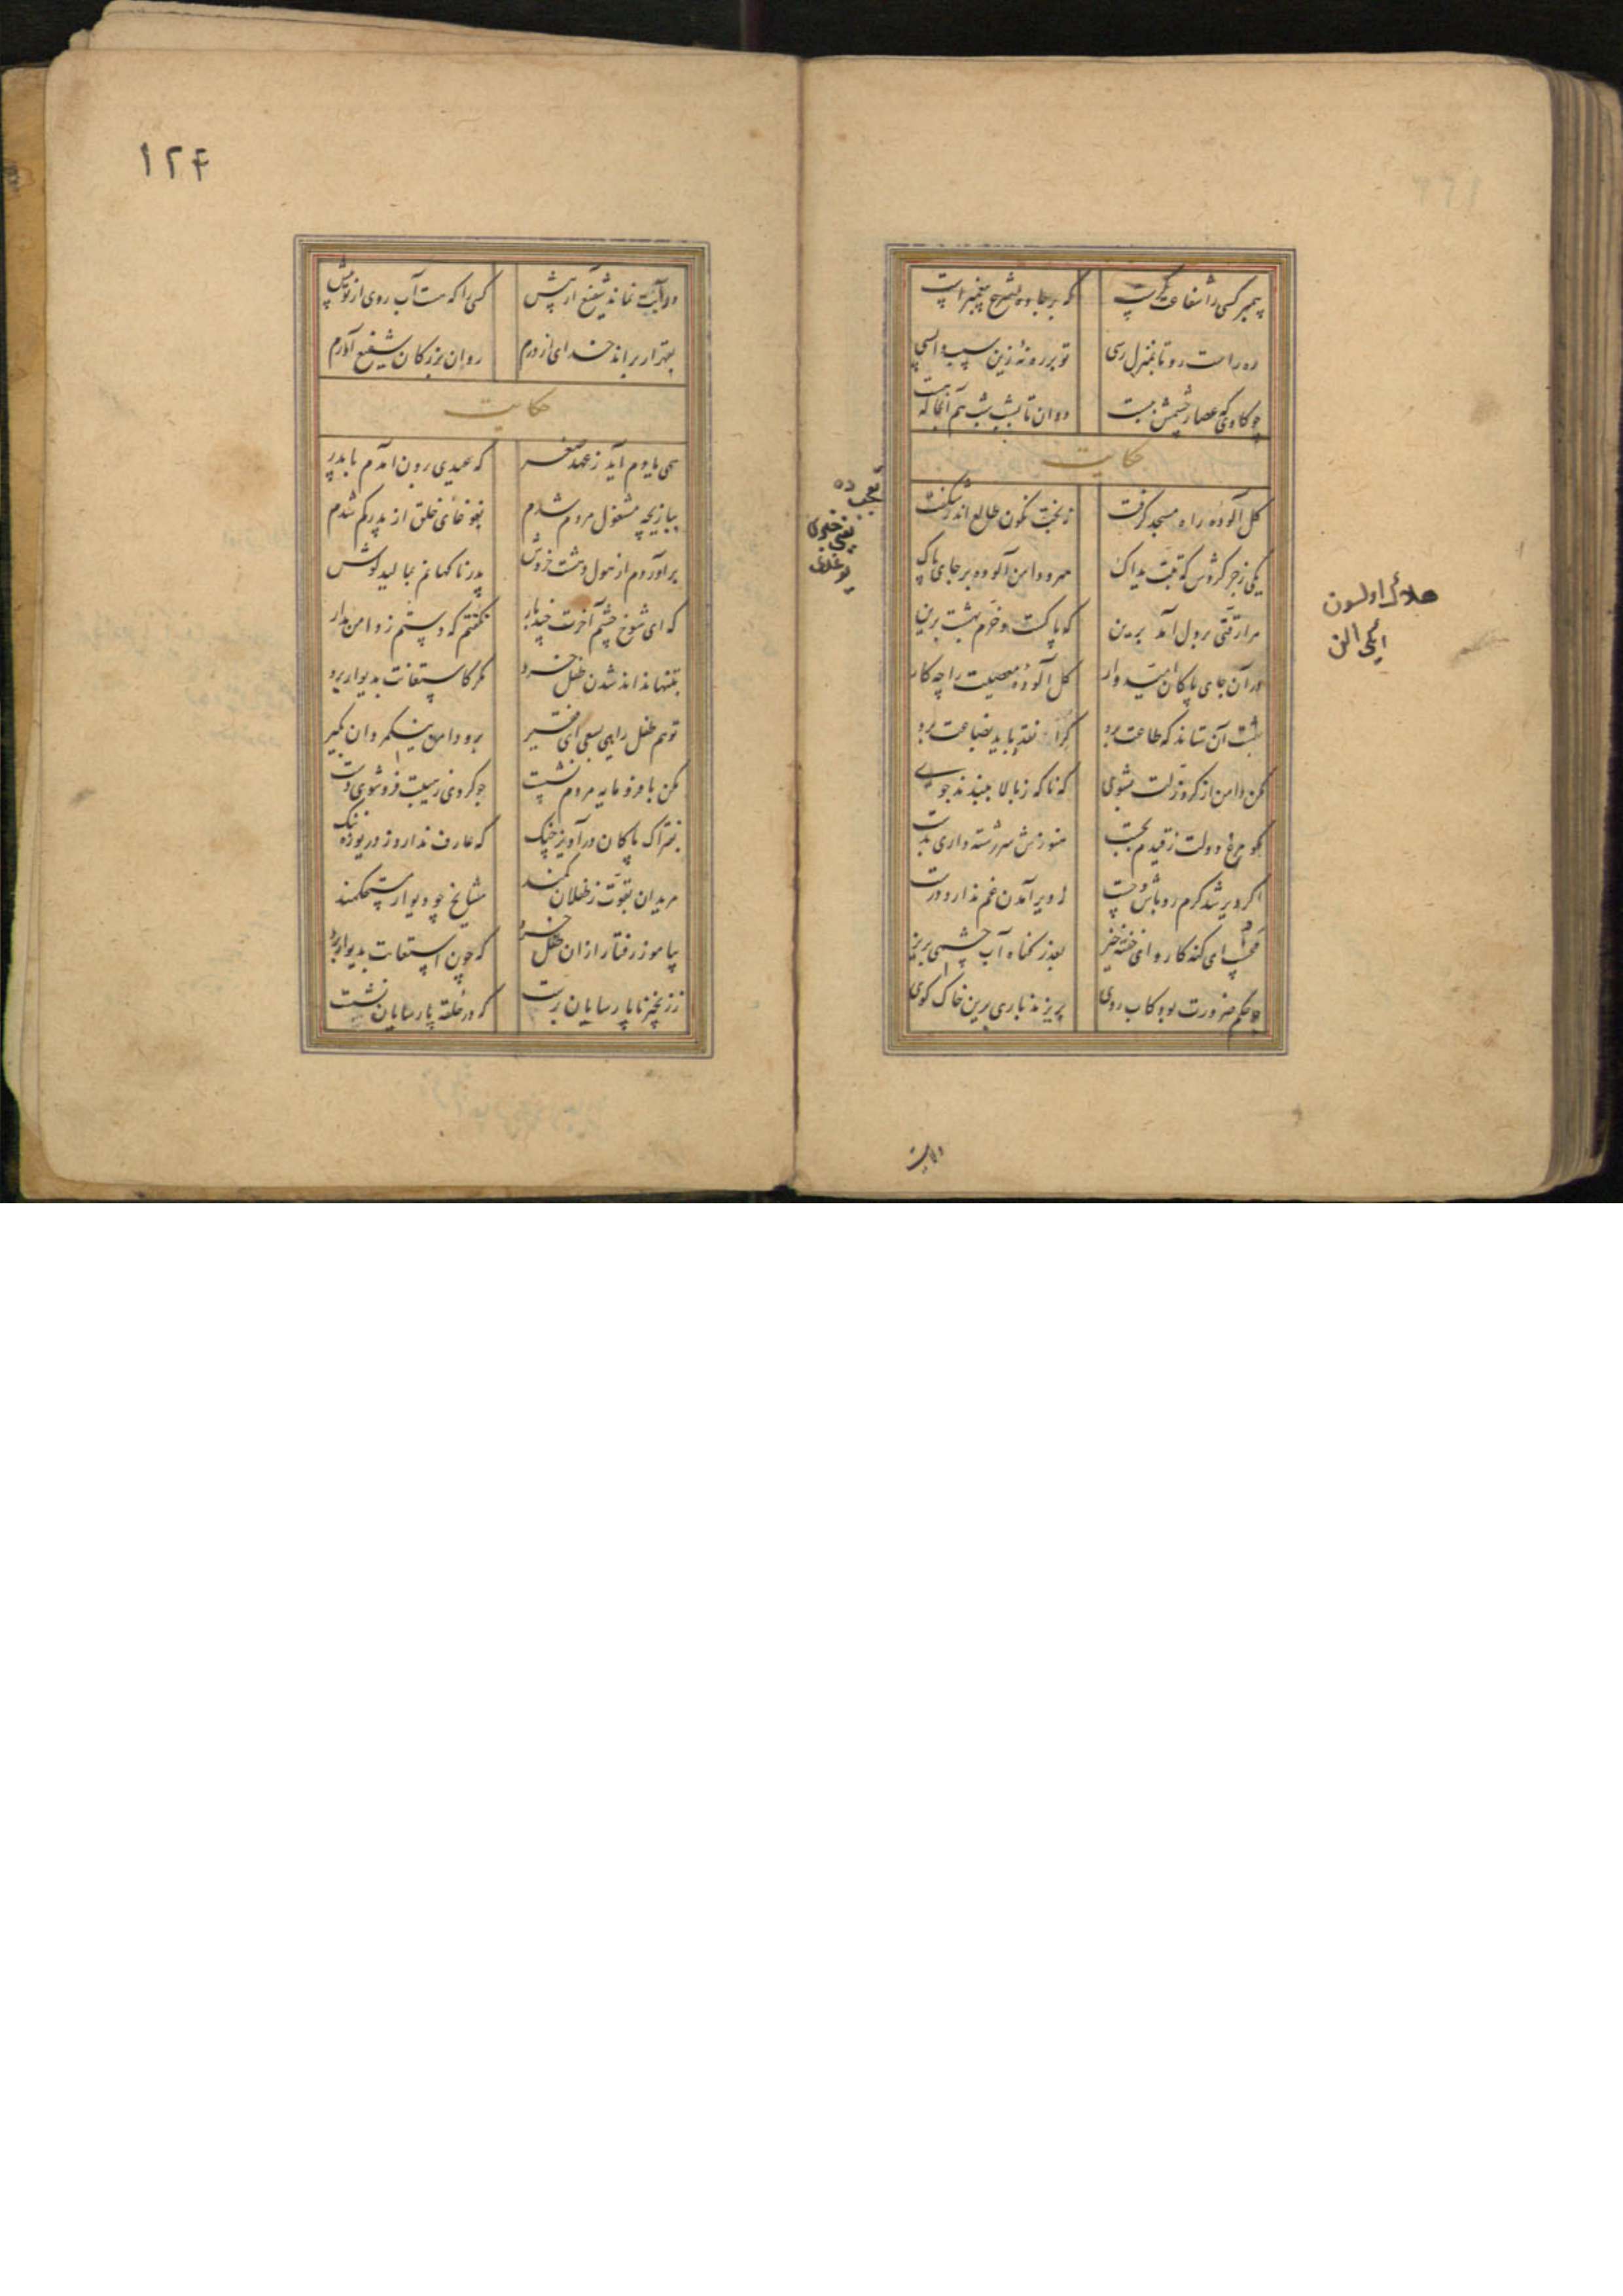 پیمبر کسی را شفاعت گرست که بر جاده شرع پیغمبرست
ره راست رو تا بمنزل رسی تو بر ره نۀ زین سبب واپسی
چو کاوی که عصار چشمش ببست دوان تا بشب شب هم آنجا که هست
حکایت
کل آلودۀ راه مسجد گرفت ز بخت نکون طالع اندر شکفت
یکی زجر کردش که تبت یداک مرو دامن آلوده بر جای پاک
مرا رقتی بر دل آمد برین که پاکست و خرم بهشت برین
در آن جای پاکان امیدوار کل آلودۀ معصیت را چه کار
بهشت آن ستاند که طاعت برد کرا نقد باید بضاعت برد
مکن دامن از کرد زلت بشوی که ناکه ز بالا ببندند جوی
مکو مرغ دولت ز قیدم بجست هنوزش سر رشته داری بدست
اکر دیر شد کرم رو باش و چست ز دیر آمدن غم ندارد درست
مخسپ ای کنه کار و ای خفته خیز بعذر کناه آب چشمی بریز
چو حکم ضرورت بود کاب روی بریزند باری برین خاک کوی
تعجب ده
هلاک اولسون
ایکی الن
۱۲۴
ور آبت نماند شفیع آر پیش کسی را که هست آب روی از تو بیش
بقهر ار براند خدای از درم روان بزرکان شفیع آورم
حکایت
همی یادم آید ز عهد صغر که عیدی برون آمدم با پدر
ببازیچه مشغول مردم شدم بغوغای خلق از پدر کم شدم
بر آوردم از هول و دهشت خروش پدر ناکهانم بمالید کوش
که ای شوخ چشم آخرت چند بار نکفتم که دستم ز دامن مدار
بتنها نداند شدن طفل خرد مکر کاستعانت بدیوار برد
تو هم طفل راهی بسعی ای فقیر برو دامن نیک مردان بکیر
مکن با فرومایه مردم نشست چو کردی ز هیبت فرو شوی دست
بفتراک پاکان درآویز چنک که عارف ندارد ز دریوزه ننک
مریدان بقوت ز طفلان کمند مشایخ چو دیوار مستحکمند
بیاموز رفتار ازان طفل خرد که چون استعانت بدیوار برد
ز زنجیر ناپارسایان برست که در حلقۀ پارسایان نشست